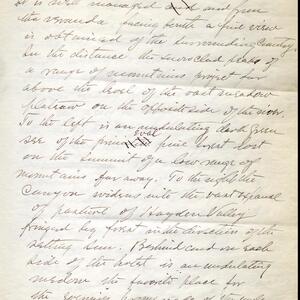 It is well managed and from
the veranda facing south a fine view
is obtained of the surrounding Country
In the distance the snowclad peaks of
a range of mountains project far
above the level of the vast meadow
plateau on the opposite side of the river.
To the left is an undulating dark green
sea of the pine forest lost
on the summit of a low range of
mountains far away. To the right the
Canyon widens into the vast expanse
of pasture of Hayden Valley
fringed by forest in the direction of the
setting sun. Behind and on each
side of the hotel is an undulating
meadow the favorite place for
the evening